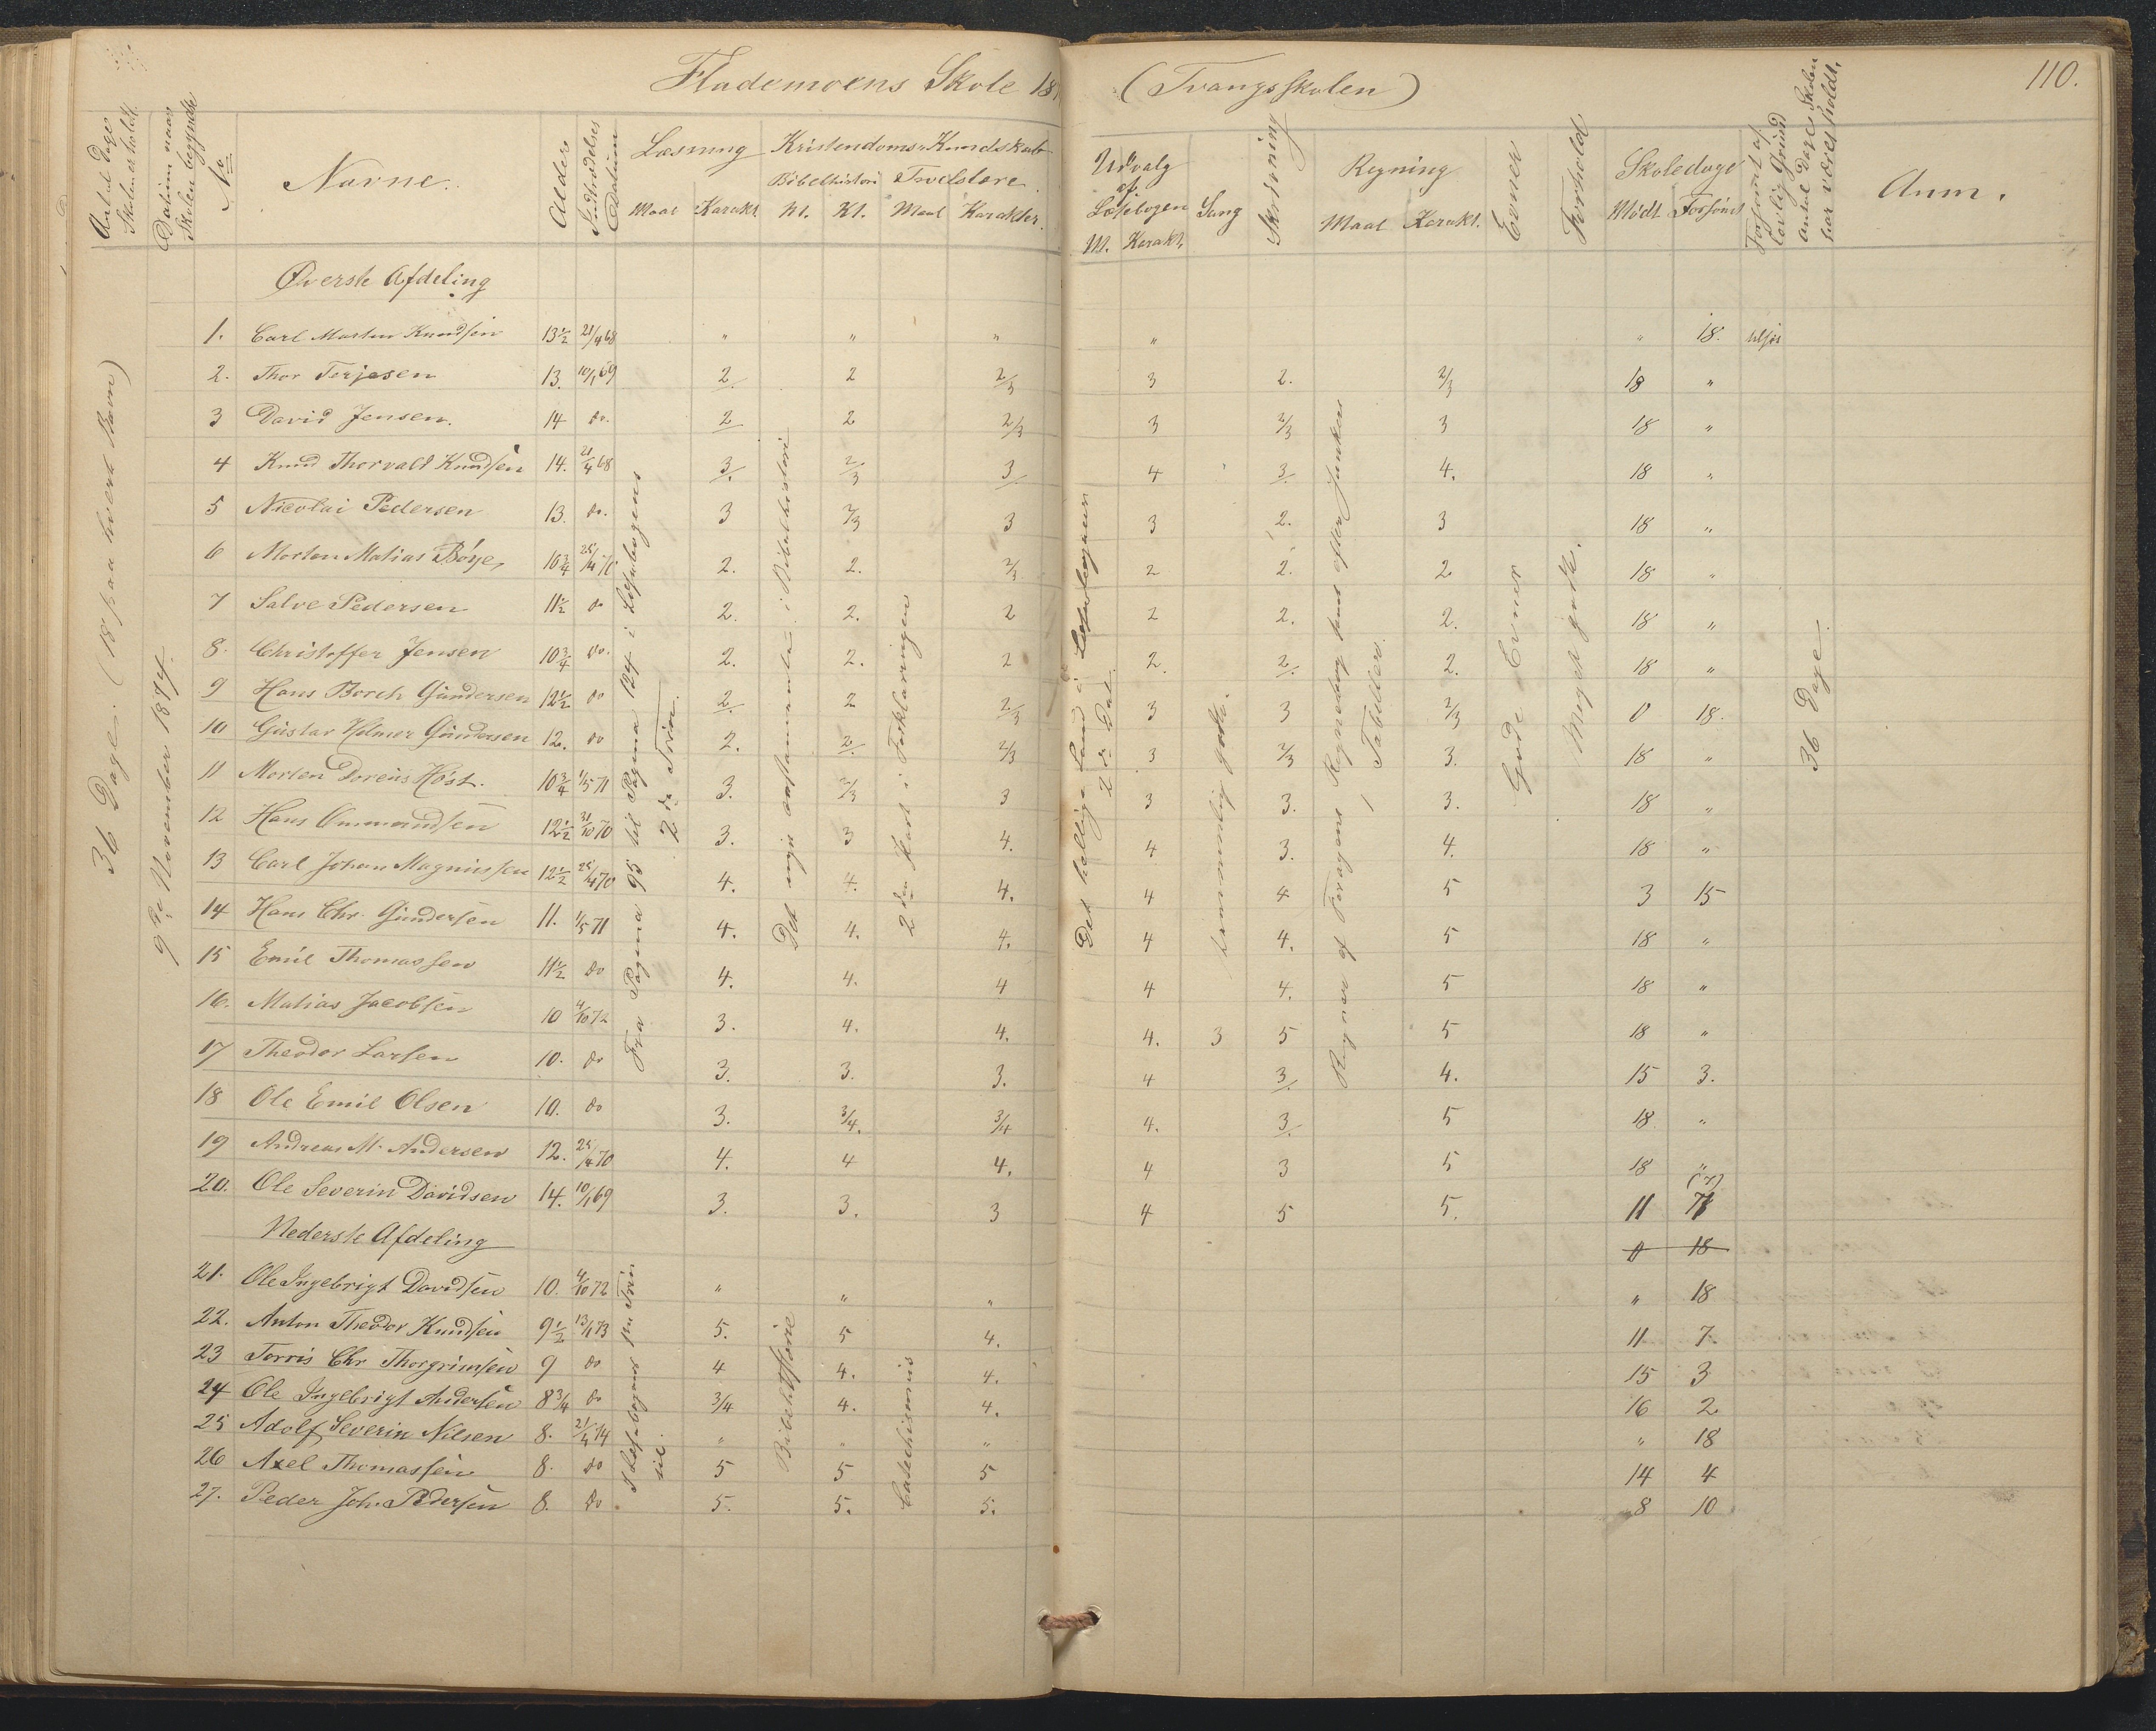 Flademoens Skole 18
(Tvangsskolen)
110.
Antal Dage Skolen er holdt.
Datum naar Skolen begyndte
No
Navne.
Alder
Indtrædelses Datum
Læsning
Maal Karakt.
Kristendoms-Kundskab
Bibelhistori Troeslære
M. Kt. Maal Karakter.
Udvalg af Læsebogen
M. Karakt.
Sang
Skrivning
Regning
Maal Karakt.
Evner
Forhold
Skoledage
Mødt Forsømt
Forsømt af lovlig Grund
Antal Dage Skolen har været holdt.
Anm.
36 Dage. (18 paa hvert Barn)
9de November 1874.
Fra Pagina 95 til Pagina 124 i Læsebogens 2de Trin.
Det nye Testamente i Bibelhistorie
2den Part i Forklaringen
Det hellige Land i Læsebogens 2de Del.
temmelig godt.
Regner af Foragens Regnebog samt efter Junkers Tabeller.
Gode Evner
Meget godt.
36 Dage.
Øverste Afdeling
1. Carl Morten Knudsen 13½ 21/4 68 " " " " " 18. tilsjøs
2. Thor Terjesen 13. 10/1 69 2 2 2/3 3 2. 2/3 18 "
3 David Jensen. 14 do. 2 2 2/3 3 2/3 3 18 "
4 Knud Thorvald Knudsen 14. 21/4 68 3. 2/3 3 4 3 4. 18 "
5 Nicolai Pedersen 13. do. 3 2/3 3 3 2. 3 18 "
6 Morten Matias Bøye, 10¾ 25/4 70 2. 2. 2/3 2 2. 2 18 "
7 Salve Pedersen 11½ do 2. 2. 2 2 2. 2. 18 "
8. Christoffer Jensen 10¾ do. 2. 2. 2 2. 2 2. 18 "
9 Hans Borch Gundersen 12½ do 2 2 2/3 3 3 2/3 0 18.
10 Gustav Helmer Gundersen 12. do 2. 2 2/3 3 2/3 3. 18 "
11 Morten Doreus Høst. 10¾ 1/5 71 3. 2/3 3 3 3. 3. 18 "
12 Hans Ommundsen 12½ 31/10 70 3. 3 4. 4 3. 4. 18 "
13 Carl Johan Magnussen 12½ 25/4 70 4. 4. 4. 4 4 5 3 15
14 Hans Chr. Gundersen 11. 1/5 71 4. 4. 4. 4 4. 5 18 "
15 Emil Thomassen 11½ do 4. 4. 4 4 4. 5 18 "
16. Matias Jacobsen 10 4/10 72 3. 4. 4. 4. 3 5 5 18 "
17 Theodor Larsen 10. do 3. 3. 3. 4 3 4. 15 3.
18 Ole Emil Olsen 10. do 3. 3/4. 3/4 4. 3 5 18 "
19 Andreas M. Andersen 12. 25/4 70 4. 4 4. 4 3 5 18 "
20. Ole Severin Davidsen 14. 10/1 69 3. 3. 3 4 5 5. 11 7 (7)
Nederste Afdeling
0 18
21. Ole Ingebrigt Davidsen 10. 4/10 72 " " " " 18
22. Anton Theodor Knudsen 9½ 13/1 73 5. 5 4. 11 7.
23 Torris Chr Thorgrimsen 9 do 4 4. 4. 15 3
24 Ole Ingebrigt Andersen 8¾ do 3/4 4. 4. 16 2
25 Adolf Severin Nilsen 8. 21/4 74 " " " " 18
26 Axel Thomassen 8. do 5 5 5 14 4
27. Peder Joh. Pedersen 8. do 5. 5. 5. 8 10
Bibelhistorie
Catechismus